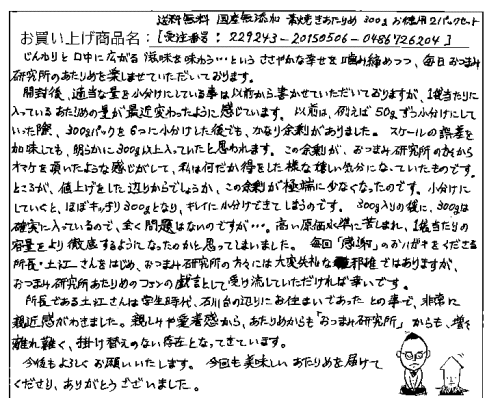 送料無料 国産無添加 素焼きあたりめ 300g お徳用2パックセット
お買い上げ商品名：[受注番号：229243-20150506-0486726204]
じんわりと口中に広がる滋味を味わう…というささやかな幸せを噛み締めつつ、毎日おつまみ
研究所のあたりめを楽しませていただいております。
開封後、適当な量を小分けにしている事は以前から書かせていただいておりますが、1袋当たりに
入っているあたりめの量が最近変わったように感じています。以前は、例えば50gずつ小分けにして
いった際、300gパックを6つに小分けした後でも、かなり余剰がありました。スケールの誤差を
加味しても、明らかに300g以上入っていたと思われます。この余剰が、おつまみ研究所の方から
オマケを頂いたような感じがして、私は何だか得をした様な嬉しい気分になっていたものです。
ところが、値上げをした辺りからでしょうか、この余剰が極端に少なくなったのです。小分けに
していくと、ほぼキッチリ300gとなり、キレイに小分けできてしまうのです。300g入りの袋に、300gは
確実に入っているので、全く問題はないのですが…。高い原価水準に苦しまれ、1袋当たりの
容量をより徹底するようになったのかと思ってしまいました。毎回「感謝」のおハガキをくださる
所長・土江さんをはじめ、おつまみ研究所の方々には大変失礼な邪推ではありますが、
おつまみ研究所あたりめのファンの戯言として受け流していただければ幸いです。
所長である土江さんは学生時代、石川台の辺りにお住まいであったとの事で、非常に
親近感がわきました。親しみや愛着感から、あたりめからも「おつまみ研究所」からも、増々
離れ難く、掛け替えのない存在となってきています。
今後もよろしくお願いいたします。今回も美味しいあたりめを届けて
くださり、ありがとうございました。